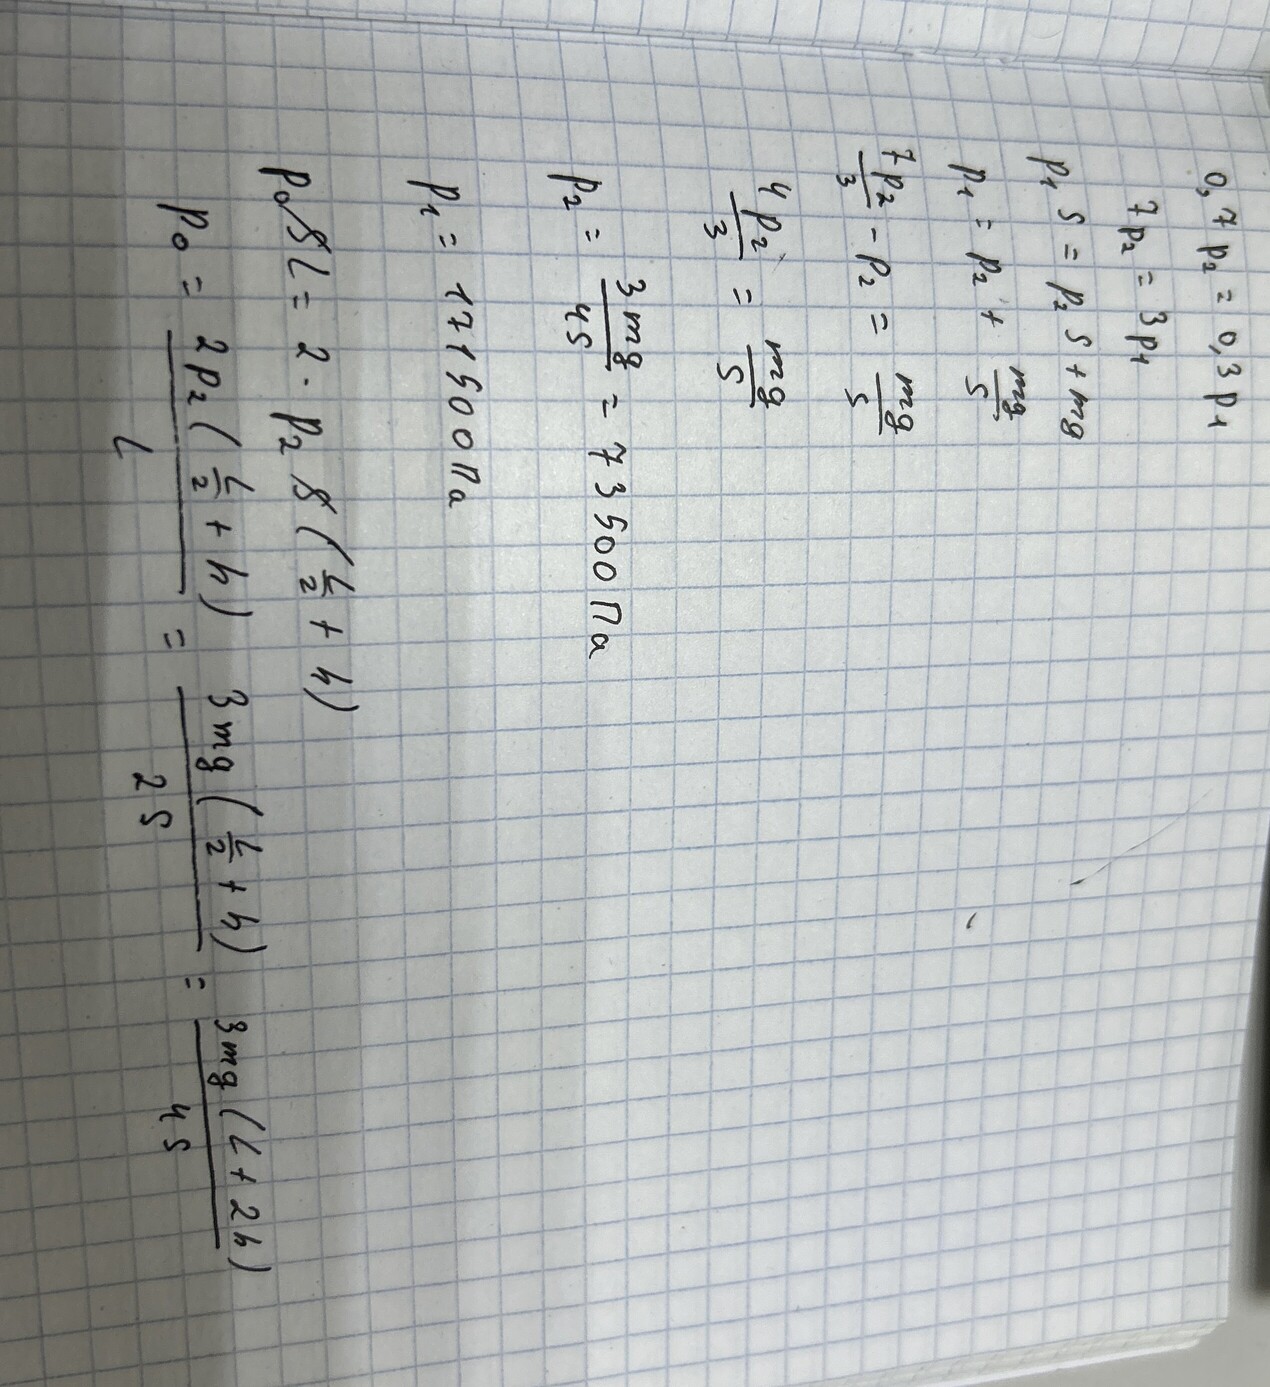 0,7 p₂ = 0,3 p₁
7p₂ = 3p₁
p₁ S = p₂ S + mg
p₁ = p₂ + mg/S
7p₂/3 - p₂ = mg/S
4p₂/3 = mg/S
p₂ = 3mg/4S = 73500 Па
p₁ = 171500 Па
p₀SL = 2 · p₂ S (L/2 + h)
p₀ = 2p₂(L/2 + h)/L = 3mg(L/2 + h)/2S = 3mg(L + 2h)/4S